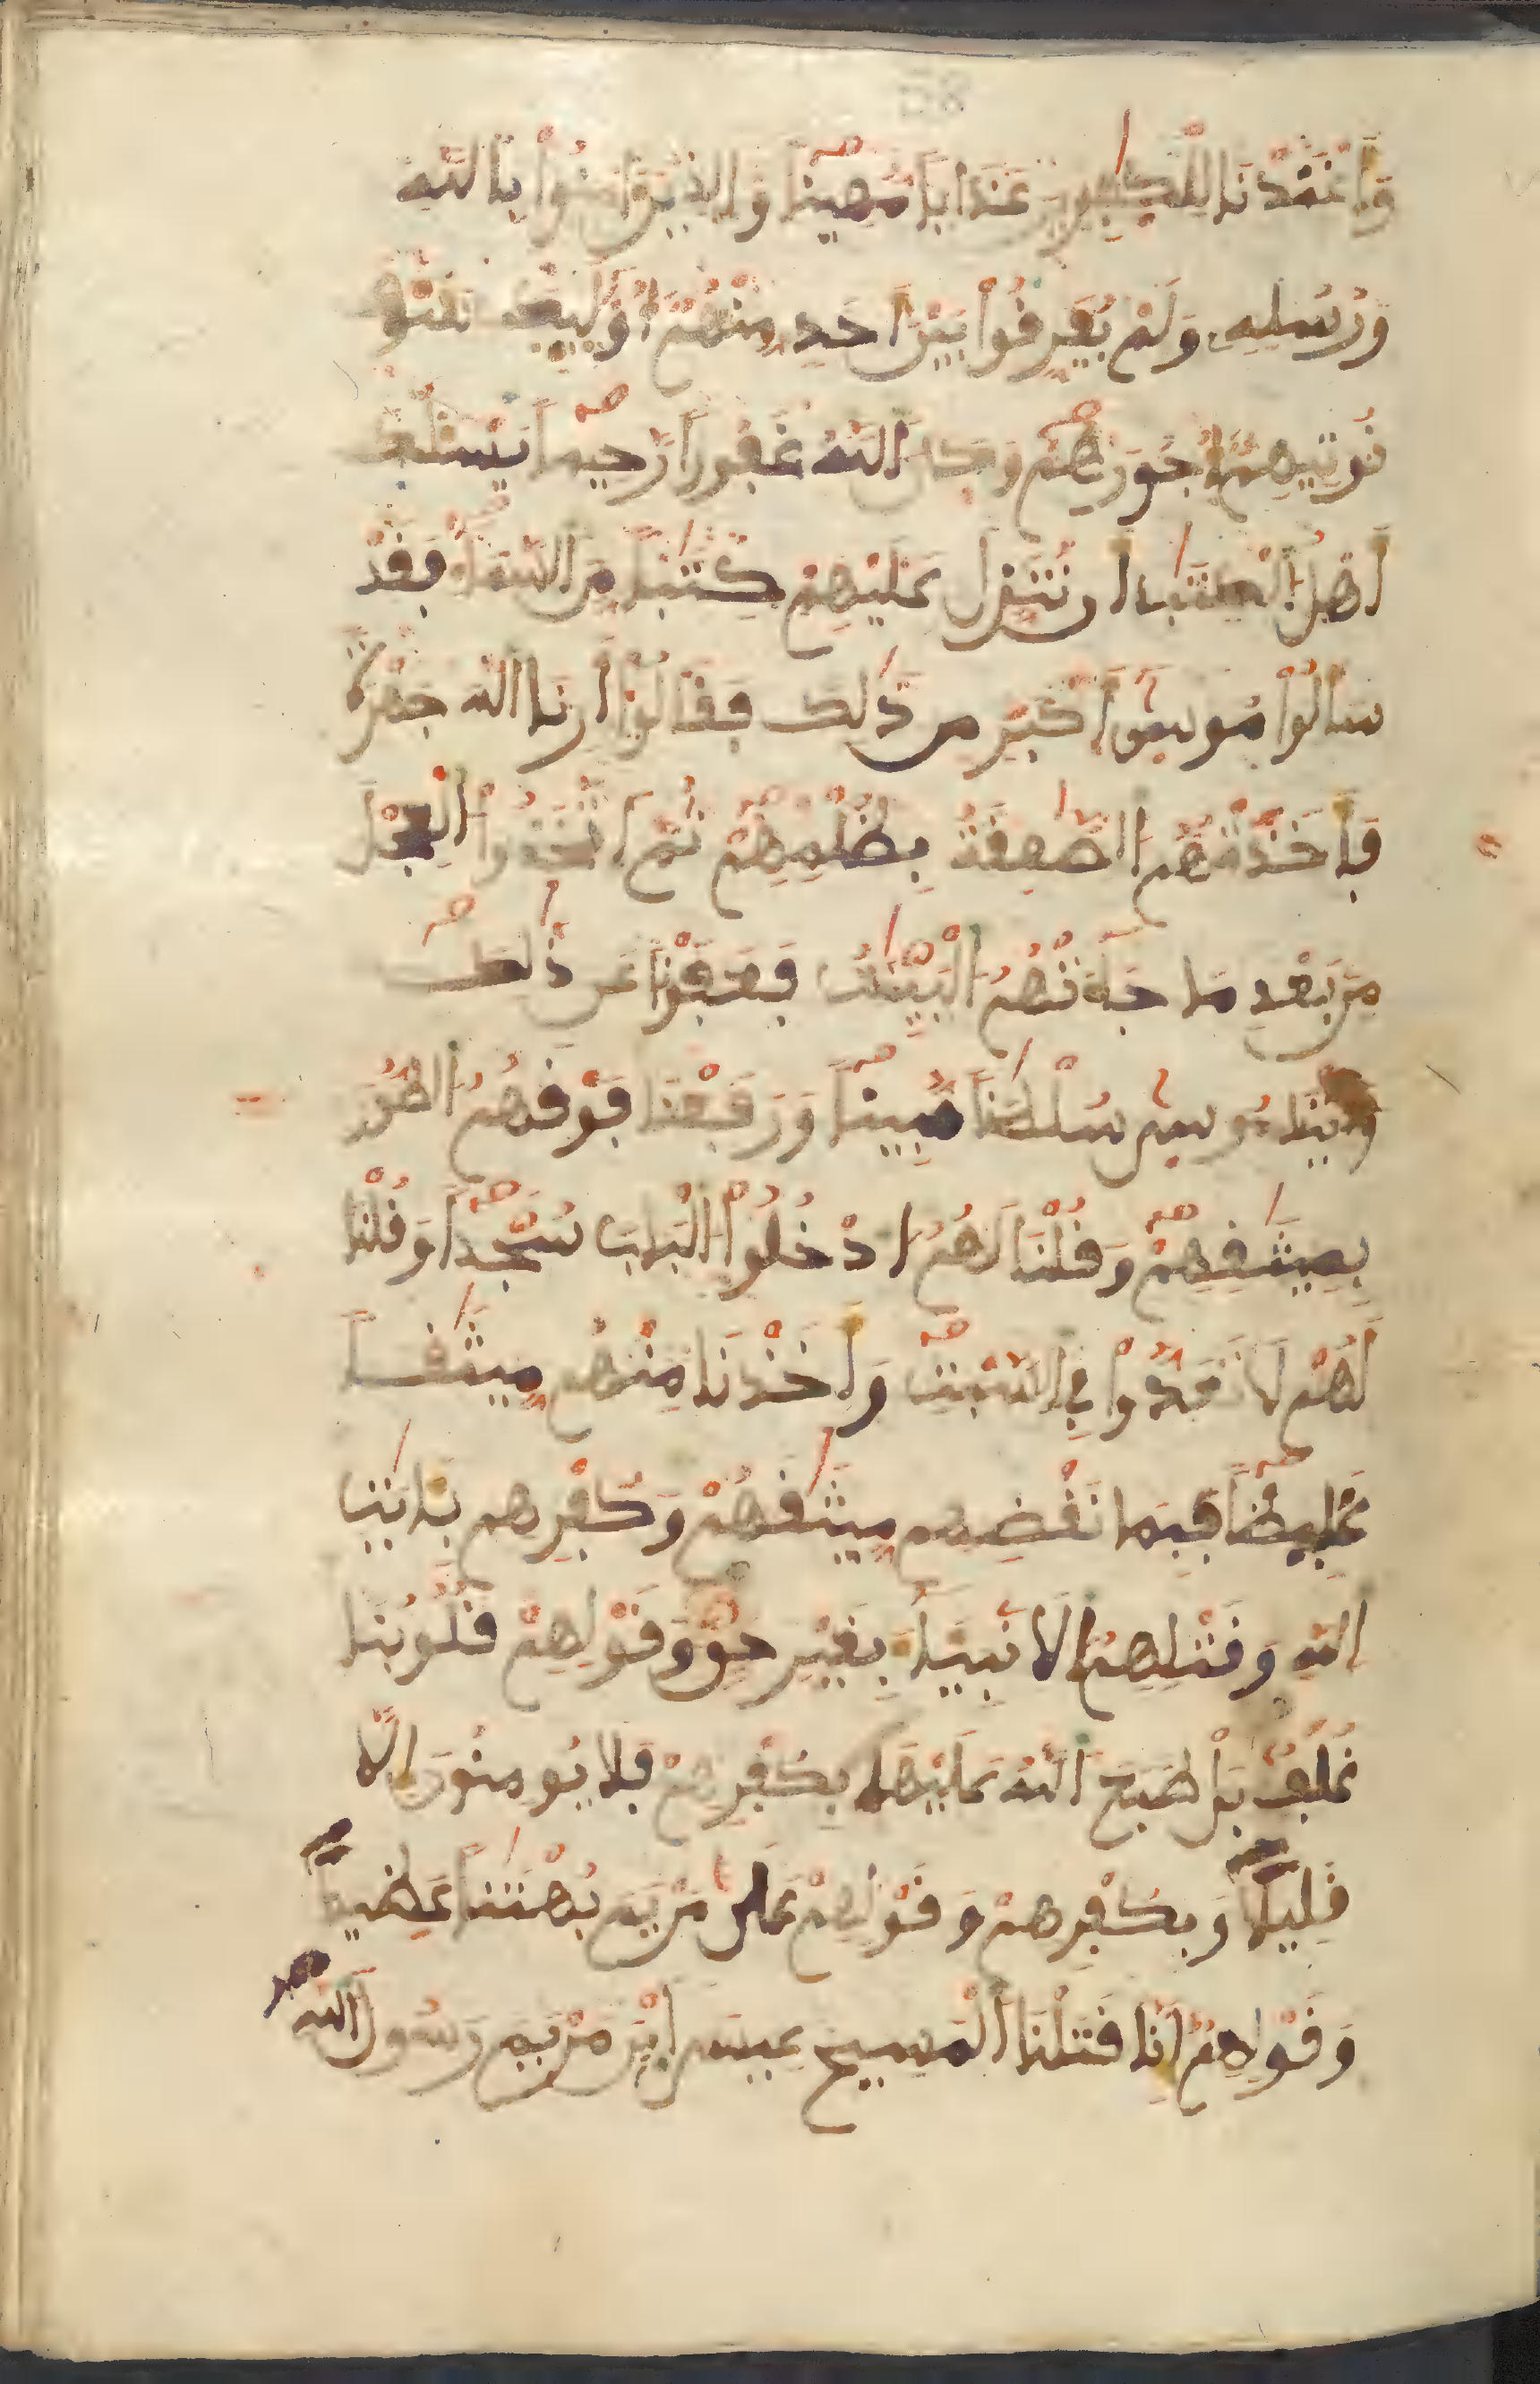 وَأَعْتَدْنَا لِلْكَٰفِرِينَ عَذَابًا مُّهِينًا وَالذِينَ ءَامَنُوا۟ بِاللَّهِ
وَرُسُلِهِۦ وَلَمْ يُفَرِّقُوا۟ بَيْنَ أَحَدٍ مِّنْهُمُۥٓ أُو۟لَٰٓئِكَ سَوْفَ
نُوتِيهِمُۥٓ أُجُورَهُمْ وَكَانَ اللَّهُ غَفُورًا رَّحِيمًا يَسْـَٔلُكَ
أَهْلُ الْكِتَٰبِ أَن تُنَزِّلَ عَلَيْهِمْ كِتَٰبًا مِّنَ السَّمَآءِ فَقَدْ
سَأَلُوا۟ مُوسَىٰٓ أَكْبَرَ مِن ذَٰلِكَ فَقَالُوٓا۟ أَرِنَا اللَّهَ جَهْرَةً
فَأَخَذَتْهُمُ الصَّٰعِقَةُ بِظُلْمِهِمْ ثُمَّ اتَّخَذُوا۟ الْعِجْلَ
مِنۢ بَعْدِ مَا جَآءَتْهُمُ الْبَيِّنَٰتُ فَعَفَوْنَا عَن ذَٰلِكَ
وَءَاتَيْنَا مُوسَىٰ سُلْطَٰنًا مُّبِينًا وَرَفَعْنَا فَوْقَهُمُ الطُّورَ
بِمِيثَٰقِهِمْ وَقُلْنَا لَهُمُ ادْخُلُوا۟ الْبَابَ سُجَّدًا وَقُلْنَا
لَهُمْ لَا تَعَدُّوا۟ فِي السَّبْتِ وَأَخَذْنَا مِنْهُم مِّيثَٰقًا
غَلِيظًا فَبِمَا نَقْضِهِم مِّيثَٰقَهُمْ وَكُفْرِهِم بِـَٔايَٰتِ
اللَّهِ وَقَتْلِهِمُ الْأَنۢبِيَآءَ بِغَيْرِ حَقٍّ وَقَوْلِهِمْ قُلُوبُنَا
غُلْفٌۢ بَلْ طَبَعَ اللَّهُ عَلَيْهَا بِكُفْرِهِمْ فَلَا يُومِنُونَ إِلَّا
قَلِيلًا وَبِكُفْرِهِمْ وَقَوْلِهِمْ عَلَىٰ مَرْيَمَ بُهْتَٰنًا عَظِيمًا
وَقَوْلِهِمُۥٓ إِنَّا قَتَلْنَا الْمَسِيحَ عِيسَى ابْنَ مَرْيَمَ رَسُولَ اللَّهِ